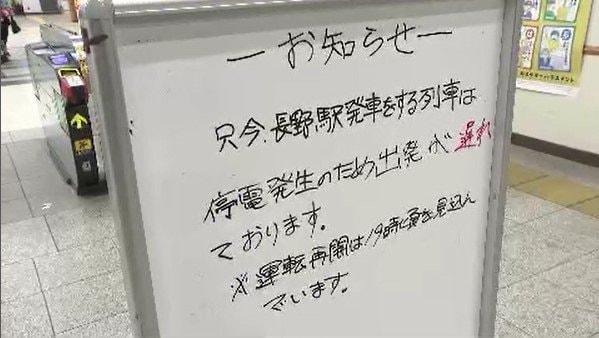 ーお知らせー
只今、長野駅発車をする列車は
停電発生のため出発が
ております。
※運転再開は19時頃を見込ん
でいます。